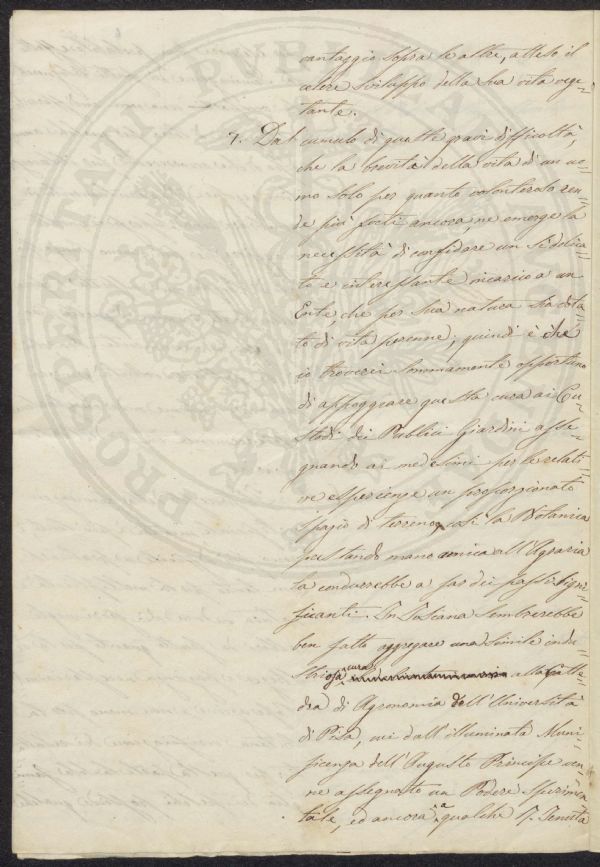 vantaggio sopra le altre, atteso il
celere sviluppo della sua vita vege=
tante.
7. Dal cumulo di queste gravi difficoltà,
che la brevità della vita di un uo=
mo solo per quanto volonteroso ren=
de più forti ancora, ne emerge la
necessità di confidare un sì delica=
to e interessante incarico a un
Ente, che per sua natura sia dota=
to di vita perenne; quindi è che
io troverei sommamente opportuno
di appoggiare questa cura ai Cu=
stodi dei Pubblici Giardini asse=
gnando ai medesimi per le relati=
ve esperienze un proporzionato
spazio di terreno, così la Botanica
prestando mano amica all'Agraria
la condurrebbe a far dei passi signi=
ficanti. In Toscana sembrerebbe
ben fatto aggregare una simile indu=
striosa cura alla Catte=
dra di Agronomia dell'Università
di Pisa, cui dall'illuminata Muni=
ficenza dell'Augusto Principe ven=
ne assegnato un Podere Sperimen=
tale, ed ancora a qualche Tenuta
PROSPERITATI PUBLICAE